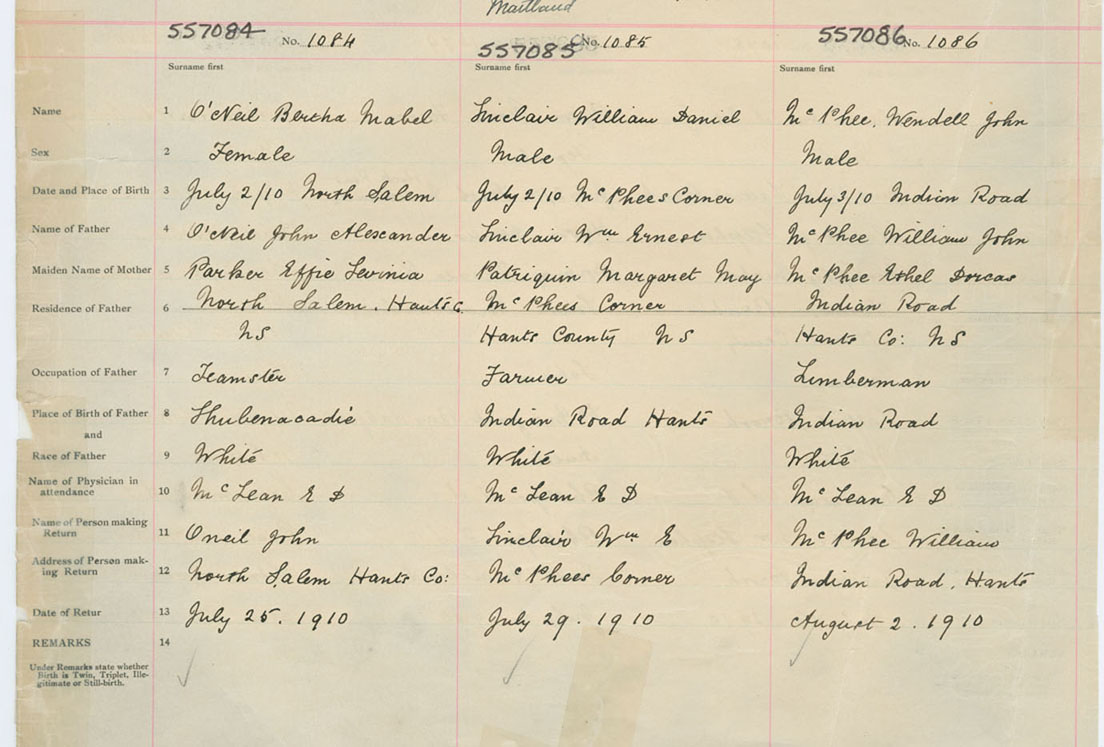 Maitland
557084 No. 1084 557085 No. 1085 557086 No. 1086
Surname first Surname first Surname first
Name 1 O'Neil Bertha Mabel Sinclair William Daniel McPhee, Wendell John
Sex 2 Female Male Male
Date and Place of Birth 3 July 2/10 North Salem July 2/10 McPhees Corner July 3/10 Indian Road
Name of Father 4 O'Neil John Alexander Sinclair Wm Ernest McPhee William John
Maiden Name of Mother 5 Parker Effie Levinia Patriquin Margaret May McPhee Ethel Dorcas
Residence of Father 6 North Salem. Hants C. McPhees Corner Indian Road
NS Hants County NS Hants Co: NS
Occupation of Father 7 Teamster Farmer Lumberman
Place of Birth of Father 8 Shubenacadie Indian Road Hants Indian Road
and
Race of Father 9 White White White
Name of Physician in
attendance 10 McLean E D McLean E D McLean E D
Name of Person making
Return 11 Oneil John Sinclair Wm E McPhee William
Address of Person mak-
ing Return 12 North Salem Hants Co: McPhees Corner Indian Road, Hants
Date of Retur 13 July 25. 1910 July 29. 1910 August 2. 1910
REMARKS 14
Under Remarks state whether
Birth is Twin, Triplet, Ille-
gitimate or Still-birth.